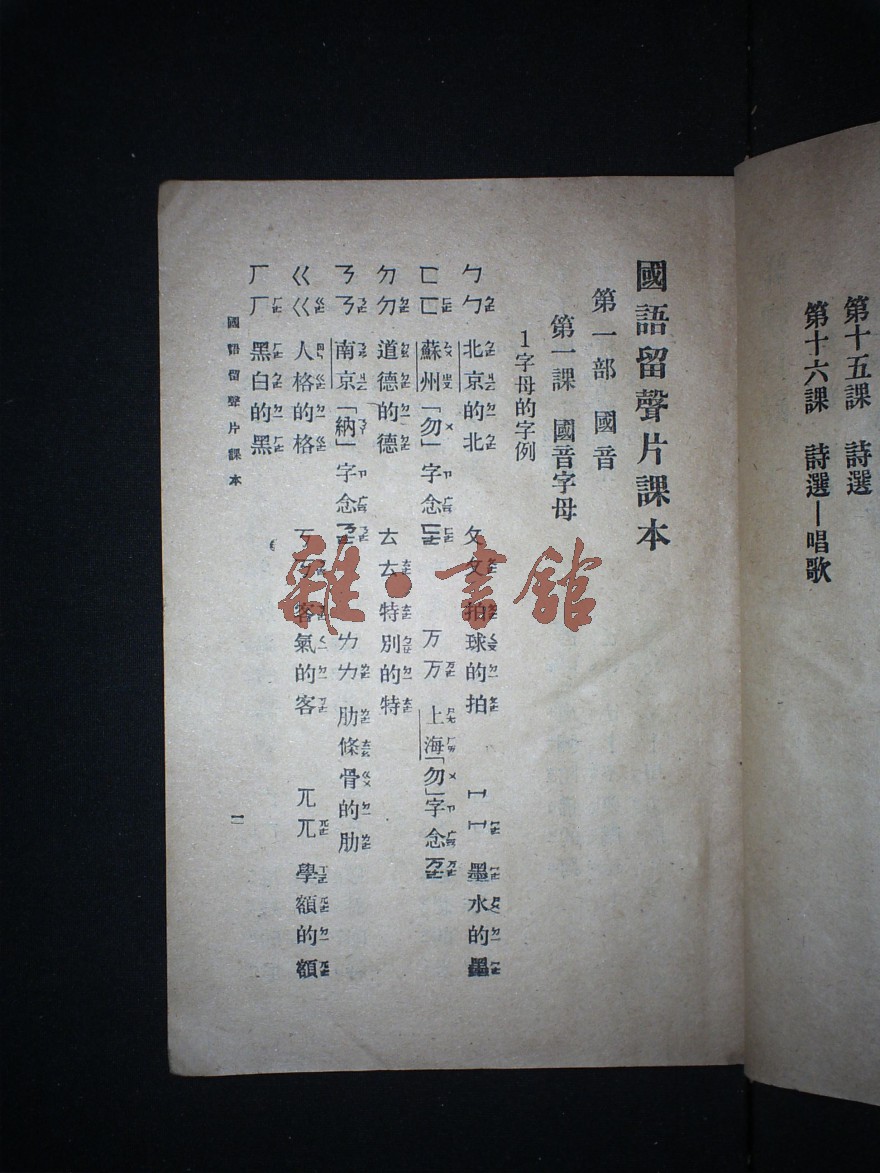 第十五課　詩選
第十六課　詩選—唱歌
國語留聲片課本
第一部　國音
第一課　國音字母
1字母的字例
ㄅ ㄅ 北京的北　ㄆ ㄆ 拍球的拍　ㄇ ㄇ 墨水的墨
ㄈ ㄈ 蘇州「勿」字念　ㄪ ㄪ 上海「勿」字念
ㄉ ㄉ 道德的德　ㄊ ㄊ 特別的特
ㄋ ㄋ 南京「納」字念　ㄌ ㄌ 肋條骨的肋
ㄍ ㄍ 人格的格　ㄎ ㄎ 客氣的客　ㄫ ㄫ 學額的額
ㄏ ㄏ 黑白的黑
國語留聲片課本
一
雜·書館